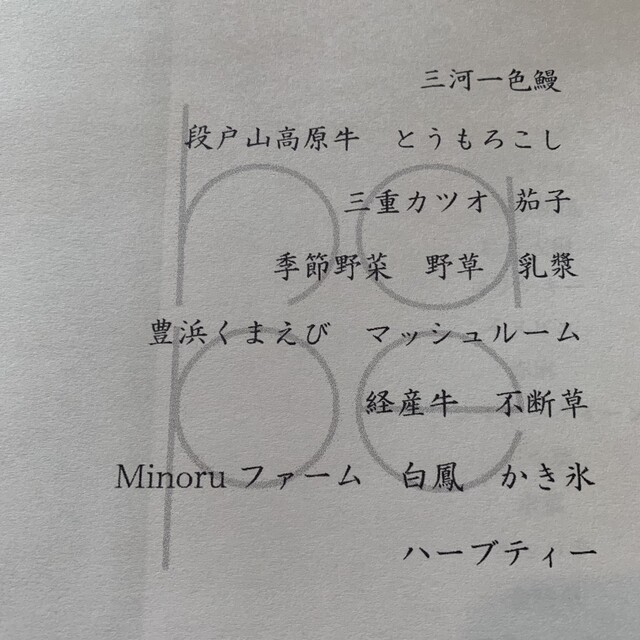 三河一色鰻
段戸山高原牛　とうもろこし
三重カツオ　茄子
季節野菜　野草　乳漿
豊浜くまえび　マッシュルーム
経産牛　不断草
Minoru ファーム　白鳳　かき氷
ハーブティー